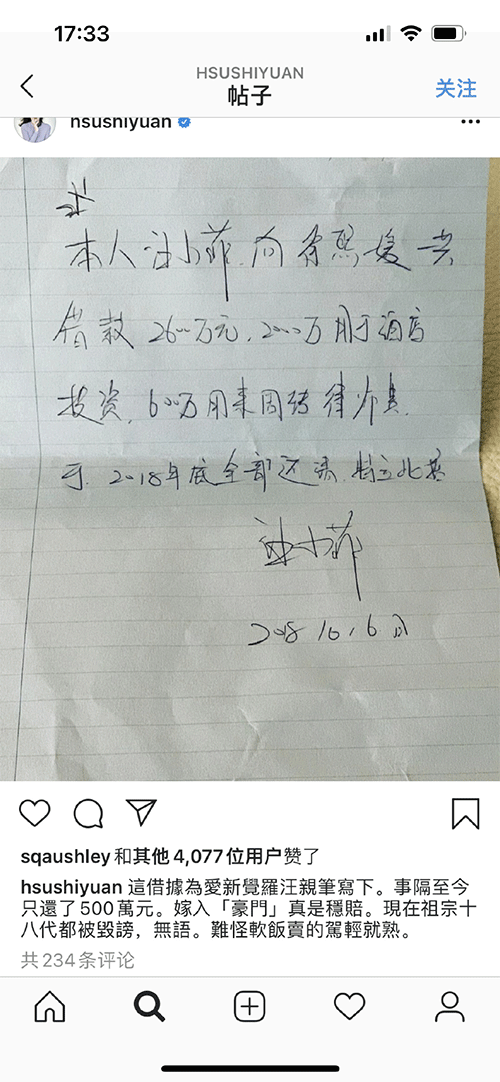 17:33
HSUSHIYUAN
帖子
关注
hsushiyuan
本人汪小菲 向徐熙媛一共
借款 2600万元,2000万用于酒店
投资,600万用来周转律师费.
于 2018年底全部还清.特立此
汪小菲
2018.10.6日
sqaushley和其他 4,077 位用户赞了
hsushiyuan 這借據為愛新覺羅汪親筆寫下。事隔至今
只還了500萬元。嫁入「豪門」真是穩賠。現在祖宗十
八代都被毀謗，無語。難怪軟飯賣的駕輕就熟。
共 234 条评论